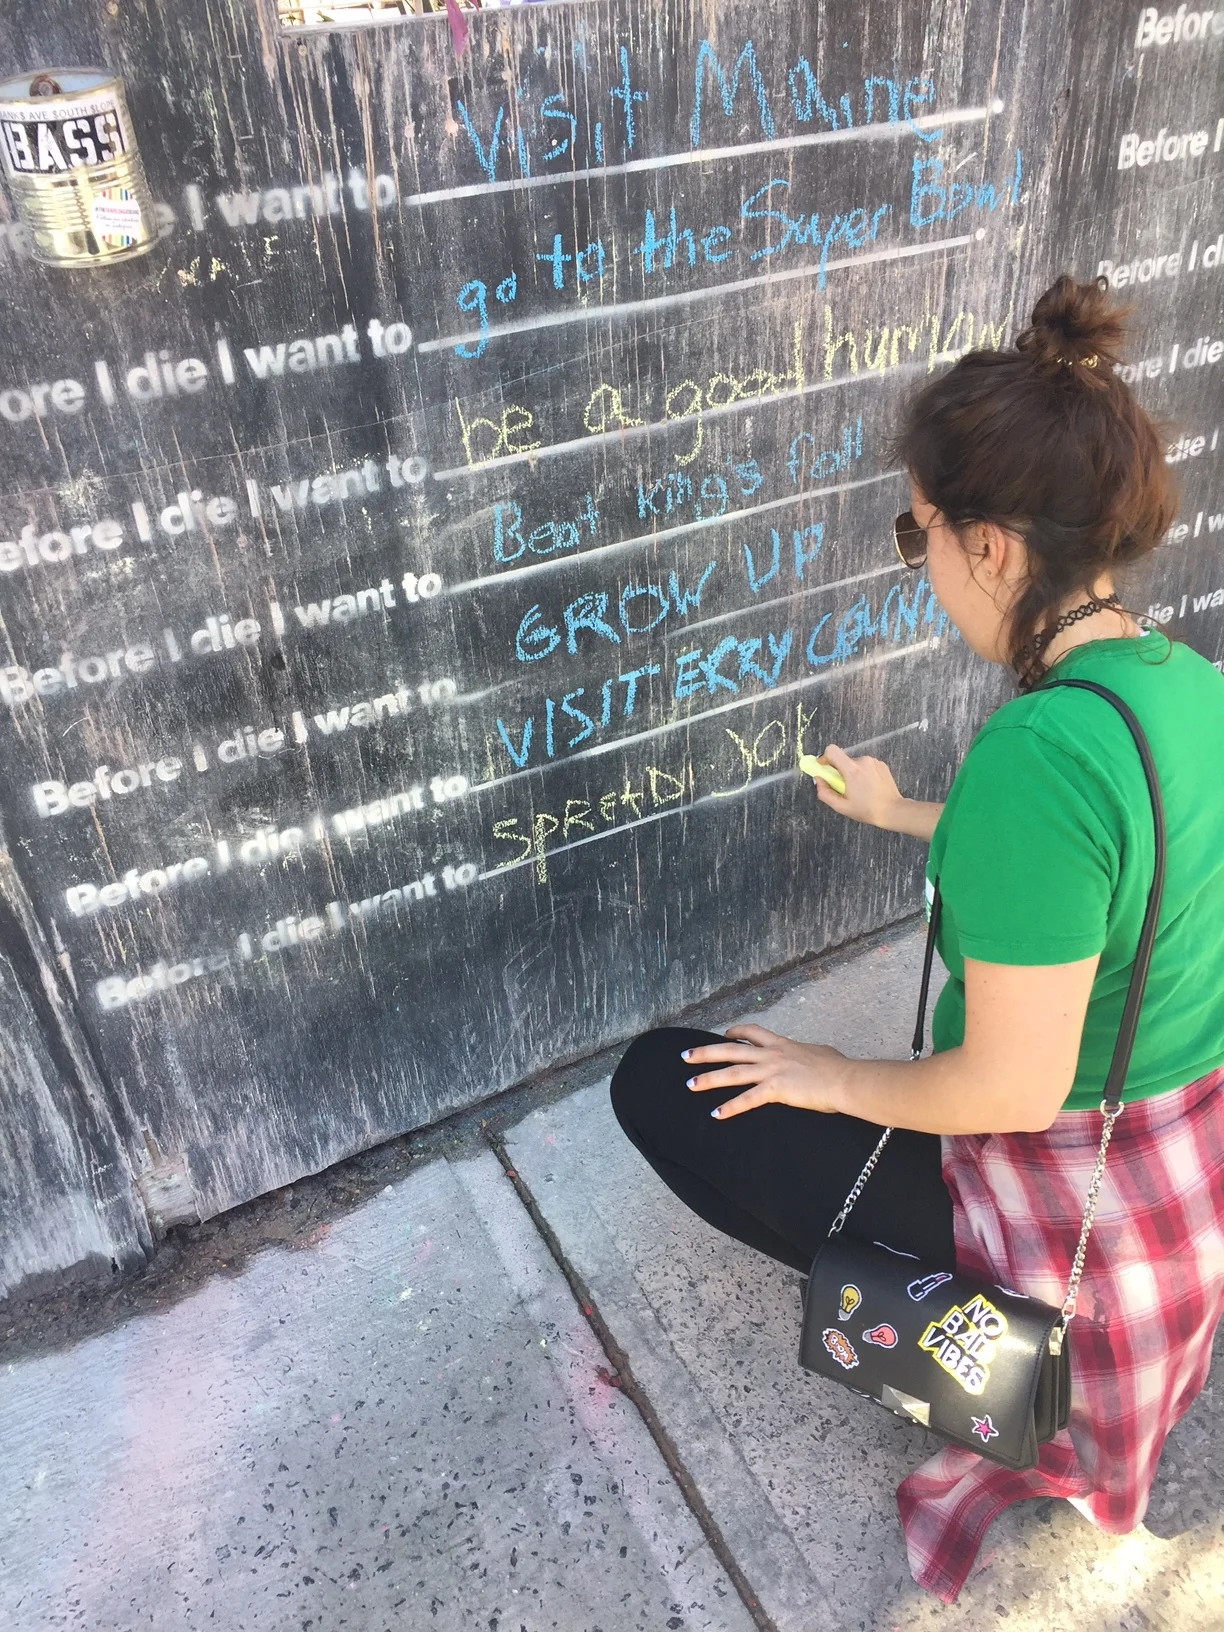 BANKS AVE SOUTH SLOPE
BASS
e I want to Visit Maine
ore I die I want to go to the Super Bowl
Before I die I want to be a good human
Before I die I want to Beat king's fall
Before I die I want to GROW UP
Before I die I want to VISIT EVERY COUNTRY
Before I die I want to SPREAD JOY
Before
Before I
Before I di
fore I die
die I
die I
die I wa
NO
BAD
VIBES